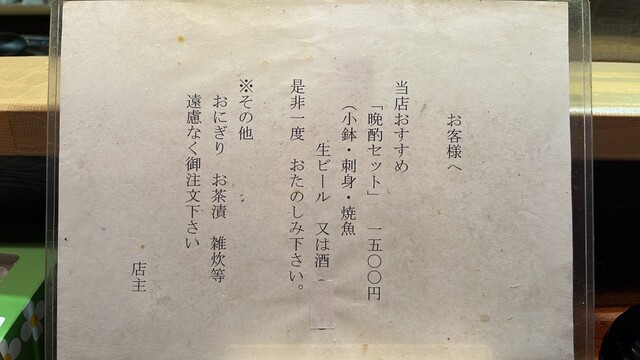 お客様へ
当店おすすめ
「晩酌セット」 一五〇〇円
(小鉢・刺身・焼魚
生ビール 又は酒(
是非一度 おたのしみ下さい。
※その他
おにぎり お茶漬 雑炊等
遠慮なく御注文下さい
店主